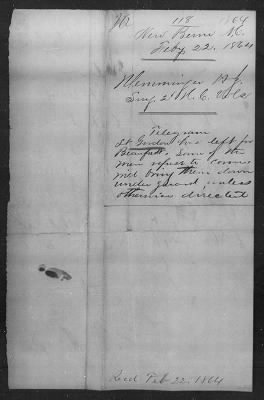 118 1864
New Berne N.C.
Feby 22. 1864
Surg 2d N.C. Vols
Telegram
Lt Gordon has left for
Beaufort. Some of the
men refuse to come
will bring them down
under guard unless
otherwise directed
Recd Feb 22. 1864